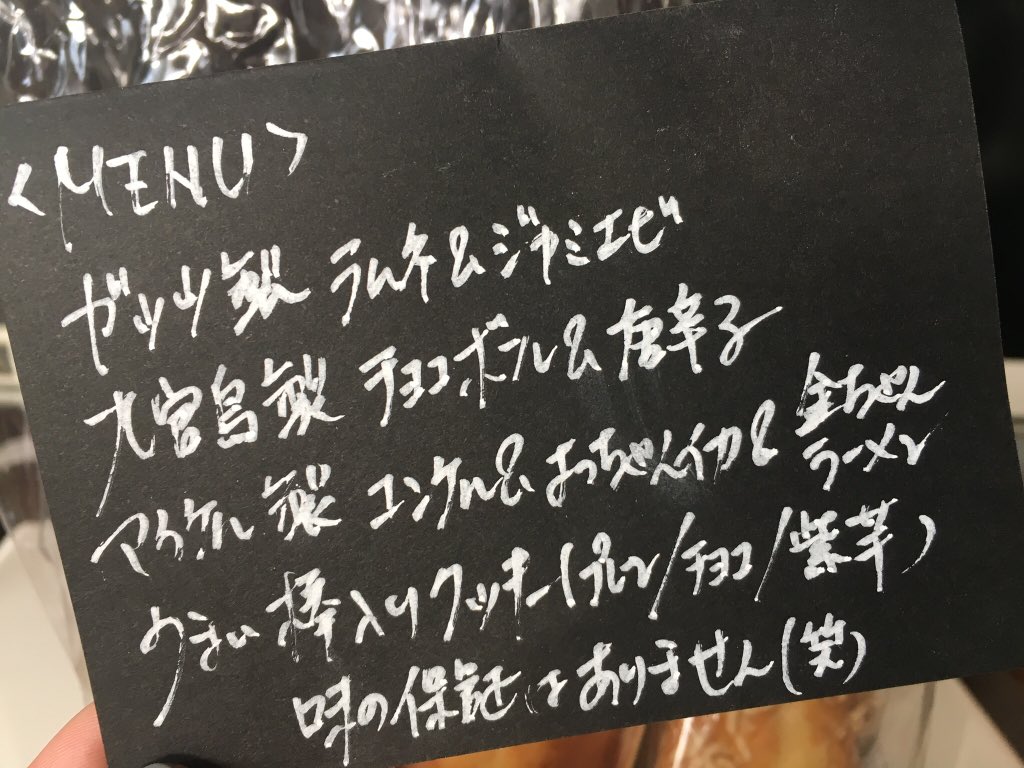 <MENU>
ガッツ製 ラムネ&ジャミエビ
大宮島製 チョコボール&唐辛子
マイケル製 ユンケル&よっちゃんイカ&金ちゃんラーメン
うまい棒入りクッキー(プレーン/チョコ/紫芋)
味の保証はありません(笑)